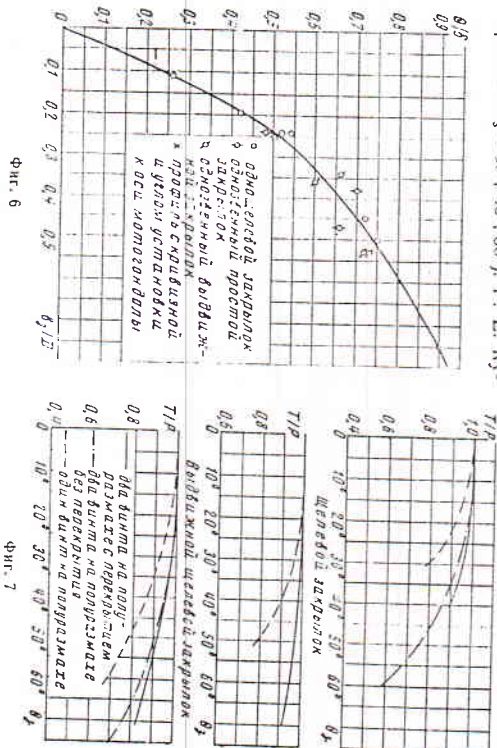 θ/δ
0,9
0,8
0,7
0,6
0,5
0,4
0,3
0,2
0,1
0
0,1
0,2
0,3
0,4
0,5
одно-щелевой закрылок
однозвенный простой
закрылок
однозвенный выдвиж-
ной закрылок
профиль с кривизной
и углом установки
к оси мотогондолы
фиг. 6
T/P
1,0
0,8
0,6
0,4
0
10°
20°
30°
40°
50°
60°
щелевой закрылок
T/P
0,8
0,6
0
10°
20°
30°
40°
50°
60°
Выдвижной щелевой закрылок
T/P
0,8
0,6
0,4
0
10°
20°
30°
40°
50°
60°
два винта на полу-
размахе с перекрытием
два винта на полуразмахе
без перекрытия
один винт на полуразмахе
фиг. 7